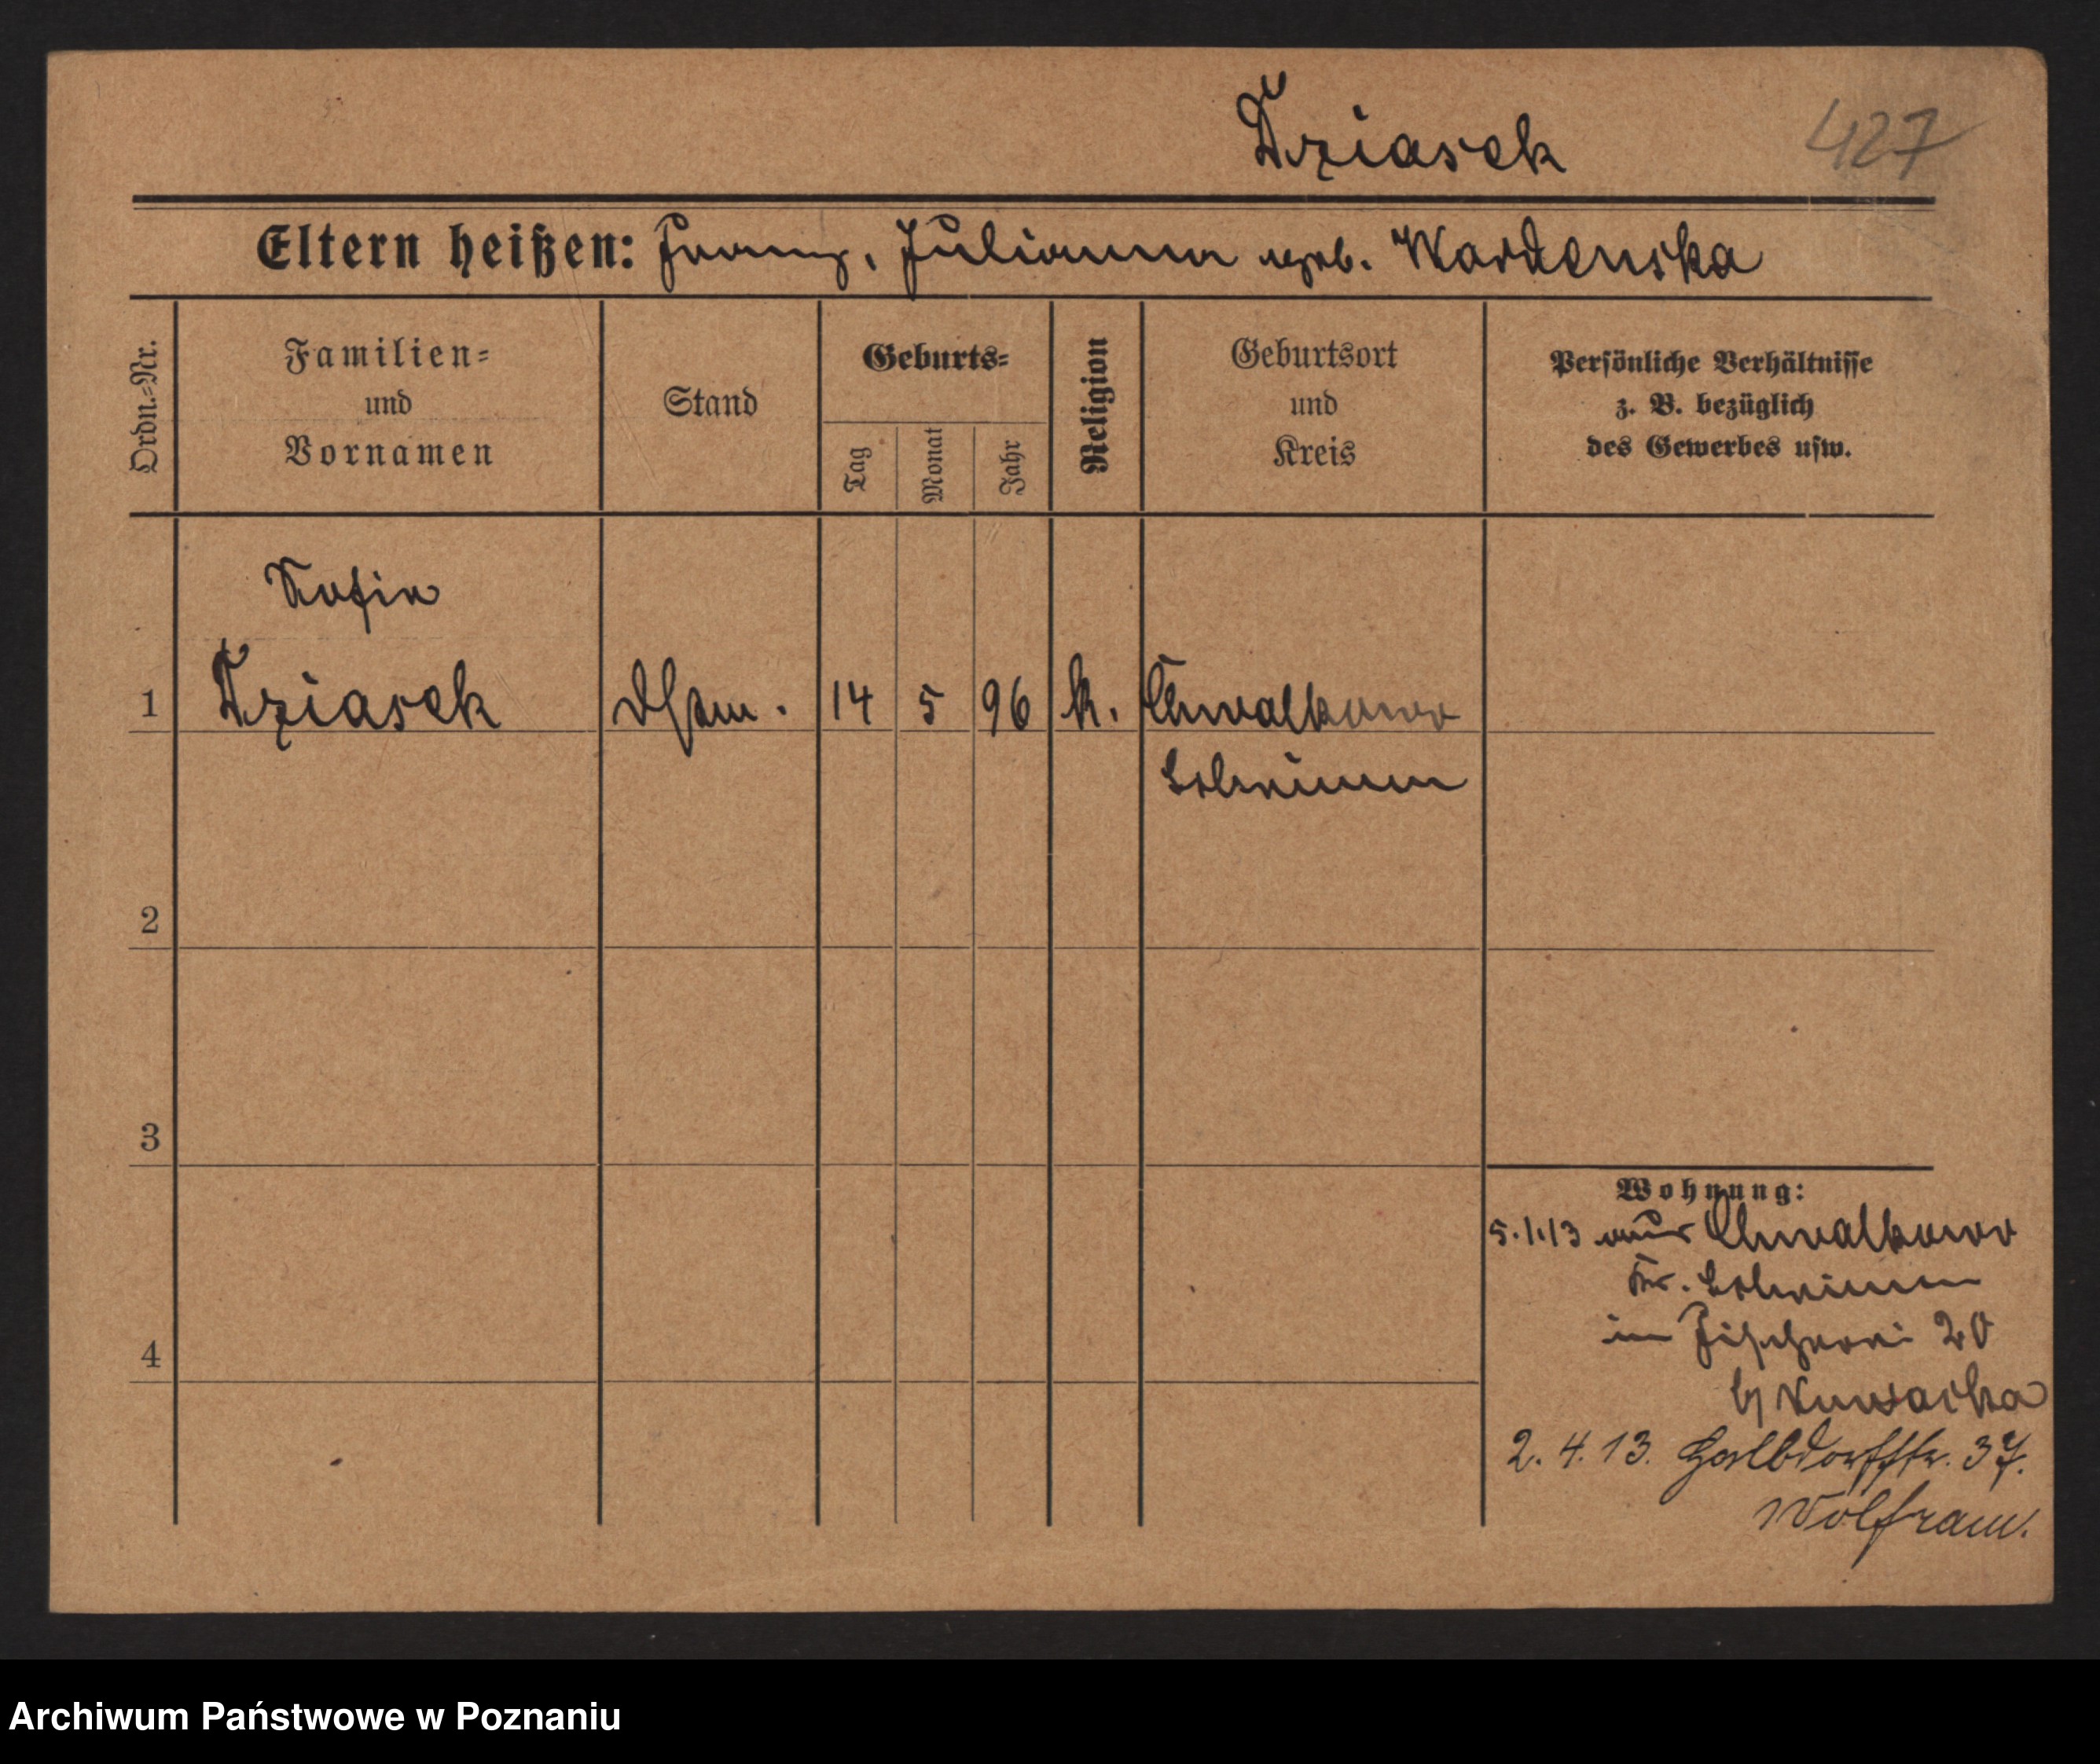 Dziasek 427
Eltern heißen: Franz, Julianna geb. Wardenska
Ordn.=Nr.
Familien=
und
Vornamen
Stand
Geburts=
Tag
Monat
Jahr
Religion
Geburtsort
und
Kreis
Persönliche Verhältnisse
z. B. bezüglich
des Gewerbes usw.
Sofia
1 Dziasek 14 5 96 k. Chwalkowo
Schrimm
2
3
4
Wohnung:
5.1.13 aus Chwalkowo
Kr. Schrimm
in Fischerei 20
b/
2. 4. 13. Halbdorfstr. 37.
Wolfram.
Archiwum Państwowe w Poznaniu